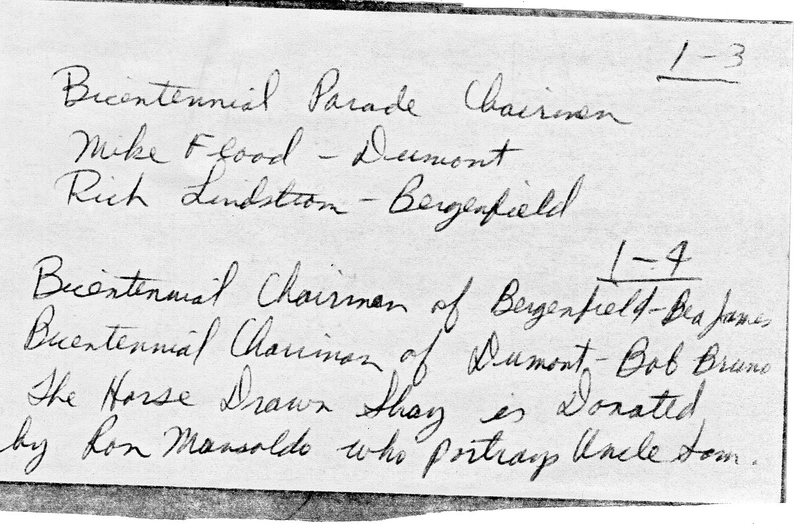 1-3
Bicentennial Parade Chairmen
Mike Flood - Dumont
Rich Lindstrom - Bergenfield
1-4
Bicentennial Chairman of Bergenfield - Bea James
Bicentennial Chairman of Dumont - Bob Bruno
The Horse Drawn Shay is Donated
by Ron Mansoldo who portrays Uncle Sam.